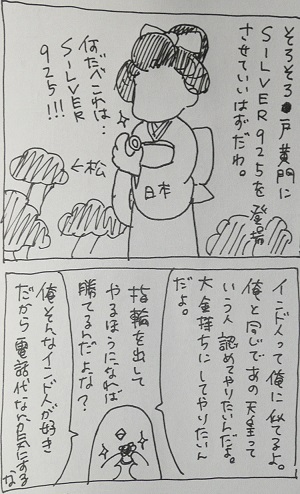 そろそろ戸黄門に
SILVER925を登場
させていいはずだわ。
何だべこれは…
SILVER
925!!!
←松
日本
インド人って俺に似てるよ。
俺と同じであの天皇って
いう人 認めてやりたいんだよ。
大金持ちにしてやりたいん
だよ。
指輪を出して
やるほうになれば
勝てるんだよな?
俺そんなインド人が好き
だから 電話代なんか気にする
な